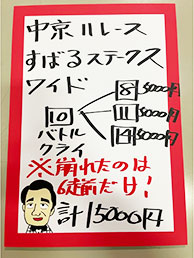 中京11レース
すばるステークス
ワイド
8 5000円
10 11 5000円
バトル 14 5000円
クライ
※崩れたのは
6走前だけ!
計15000円